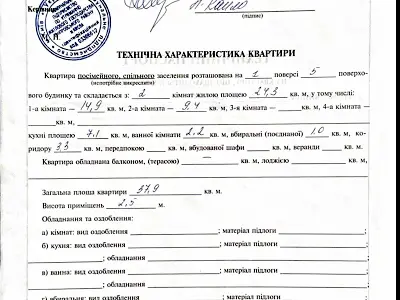 Керівник
(підпис)
ТЕХНІЧНА ХАРАКТЕРИСТИКА КВАРТИРИ
Квартира посімейного, спільного заселення розташована на 1 поверсі 5 поверхо-
(непотрібне викреслити)
вого будинку та складається з: 2 кімнат жилою площею 24,3 кв. м, у тому числі:
1-а кімната — 14,9 кв. м, 2-а кімната — 9,4 кв. м, 3-я кімната — кв. м, 4-а кімната —
кв. м,
кухні площею 7,1 кв. м, ванної кімнати 2,2 кв. м, вбиральні (поєднаної) 1,0 кв. м, ко-
ридору 3,3 кв. м, передпокою — кв. м, вбудованої шафи кв. м, веранди кв. м.
Квартира обладнана балконом, (терасою) — кв. м, лоджією кв. м.
Загальна площа квартири 37,9 кв. м.
Висота приміщень 2,5 м.
Обладнання та оздоблення:
а) кімнат: вид оздоблення ; матеріал підлоги ;
б) кухня: вид оздоблення ; матеріал підлоги
; обладнання ;
в) ванна: вид оздоблення ; матеріал підлоги
; обладнання ;
г) вбиральня: вид оздоблення ; матеріал підлоги